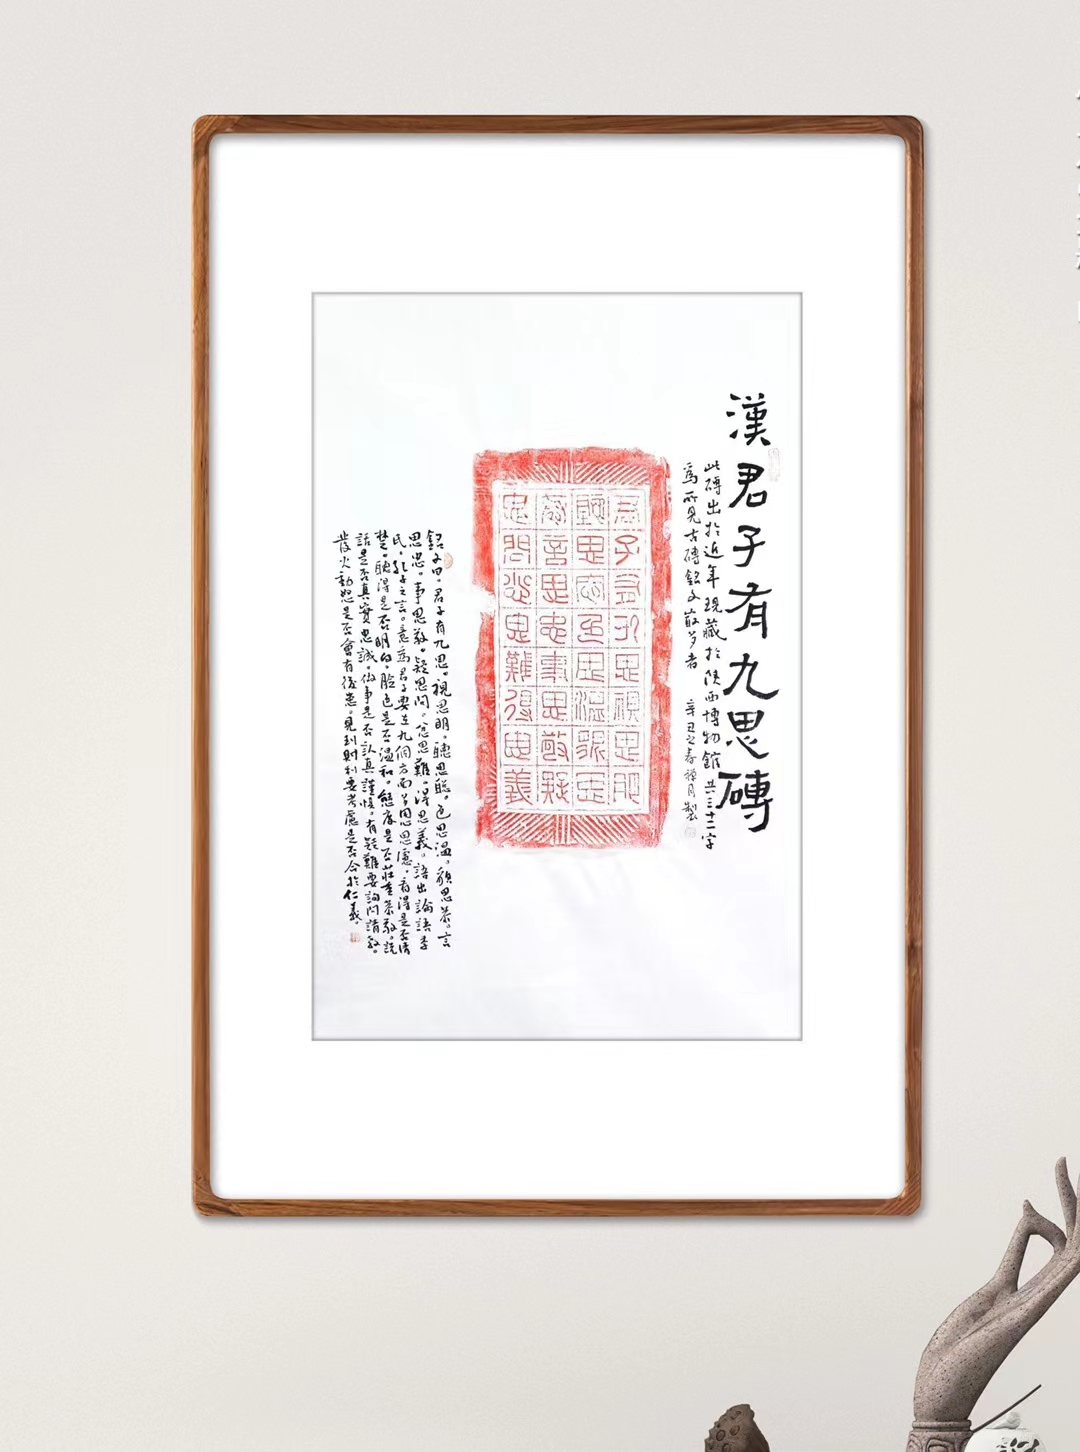 漢君子有九思磚
此磚出於近年現藏於陝西博物館共三十二字
為所見古磚銘文最多者 辛丑之春禪月製
君子有九思視思明
聽思聰色思溫貌思
恭言思忠事思敬疑
思問忿思難得思義
銘文曰。君子有九思。視思明。聽思聰。色思溫。貌思恭。言
思忠。事思敬。疑思問。忿思難。得思義。語出論語季
氏，孔子之言。意為君子要在九個方面多用思慮，看得是否清
楚。聽得是否明白，臉色是否溫和。態度是否莊重恭敬。說
話是否真實忠誠，做事是否認真謹慎。有疑難要詢問請教。
發火動怒是否會有後患。見到財利要考慮是否合於仁義。